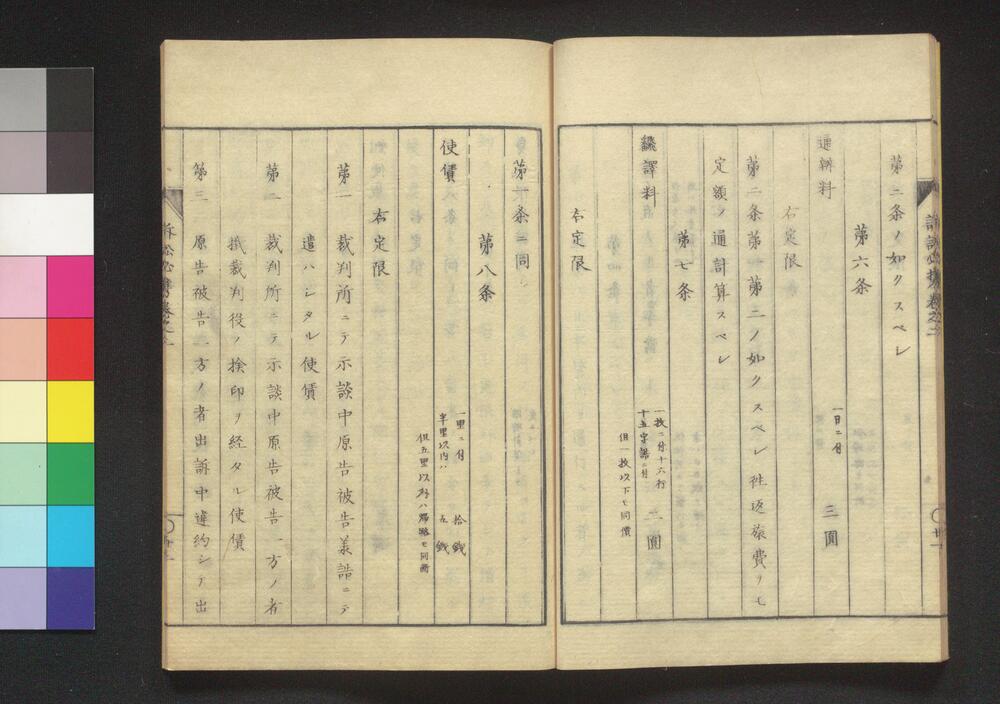 第二条ノ如クスベシ
第六条
通辨料 一日ニ付 三圓
右定限
第二条第一第二ノ如クスベシ往返旅費ヲモ
定額ノ通計算スベシ
第七条
飜譯料 一枚ニ付十六行
十五字詰ニ付 二圓
但一枚以下モ同價
右定限
第一条ニ同シ
第八条
使賃 一里ニ付 拾錢
半里以内ハ 五錢
但五里以外ハ歸路モ同断
右定限
第一 裁判所ニテ示談中原告被告義詰ニテ
遣ハシタル使賃
第二 裁判所ニテ示談中原告被告一方ノ者
裁判役ノ検印ヲ経タル使賃
第三 原告被告一方ノ者出訴中違約シテ出
訴訟必携巻之二